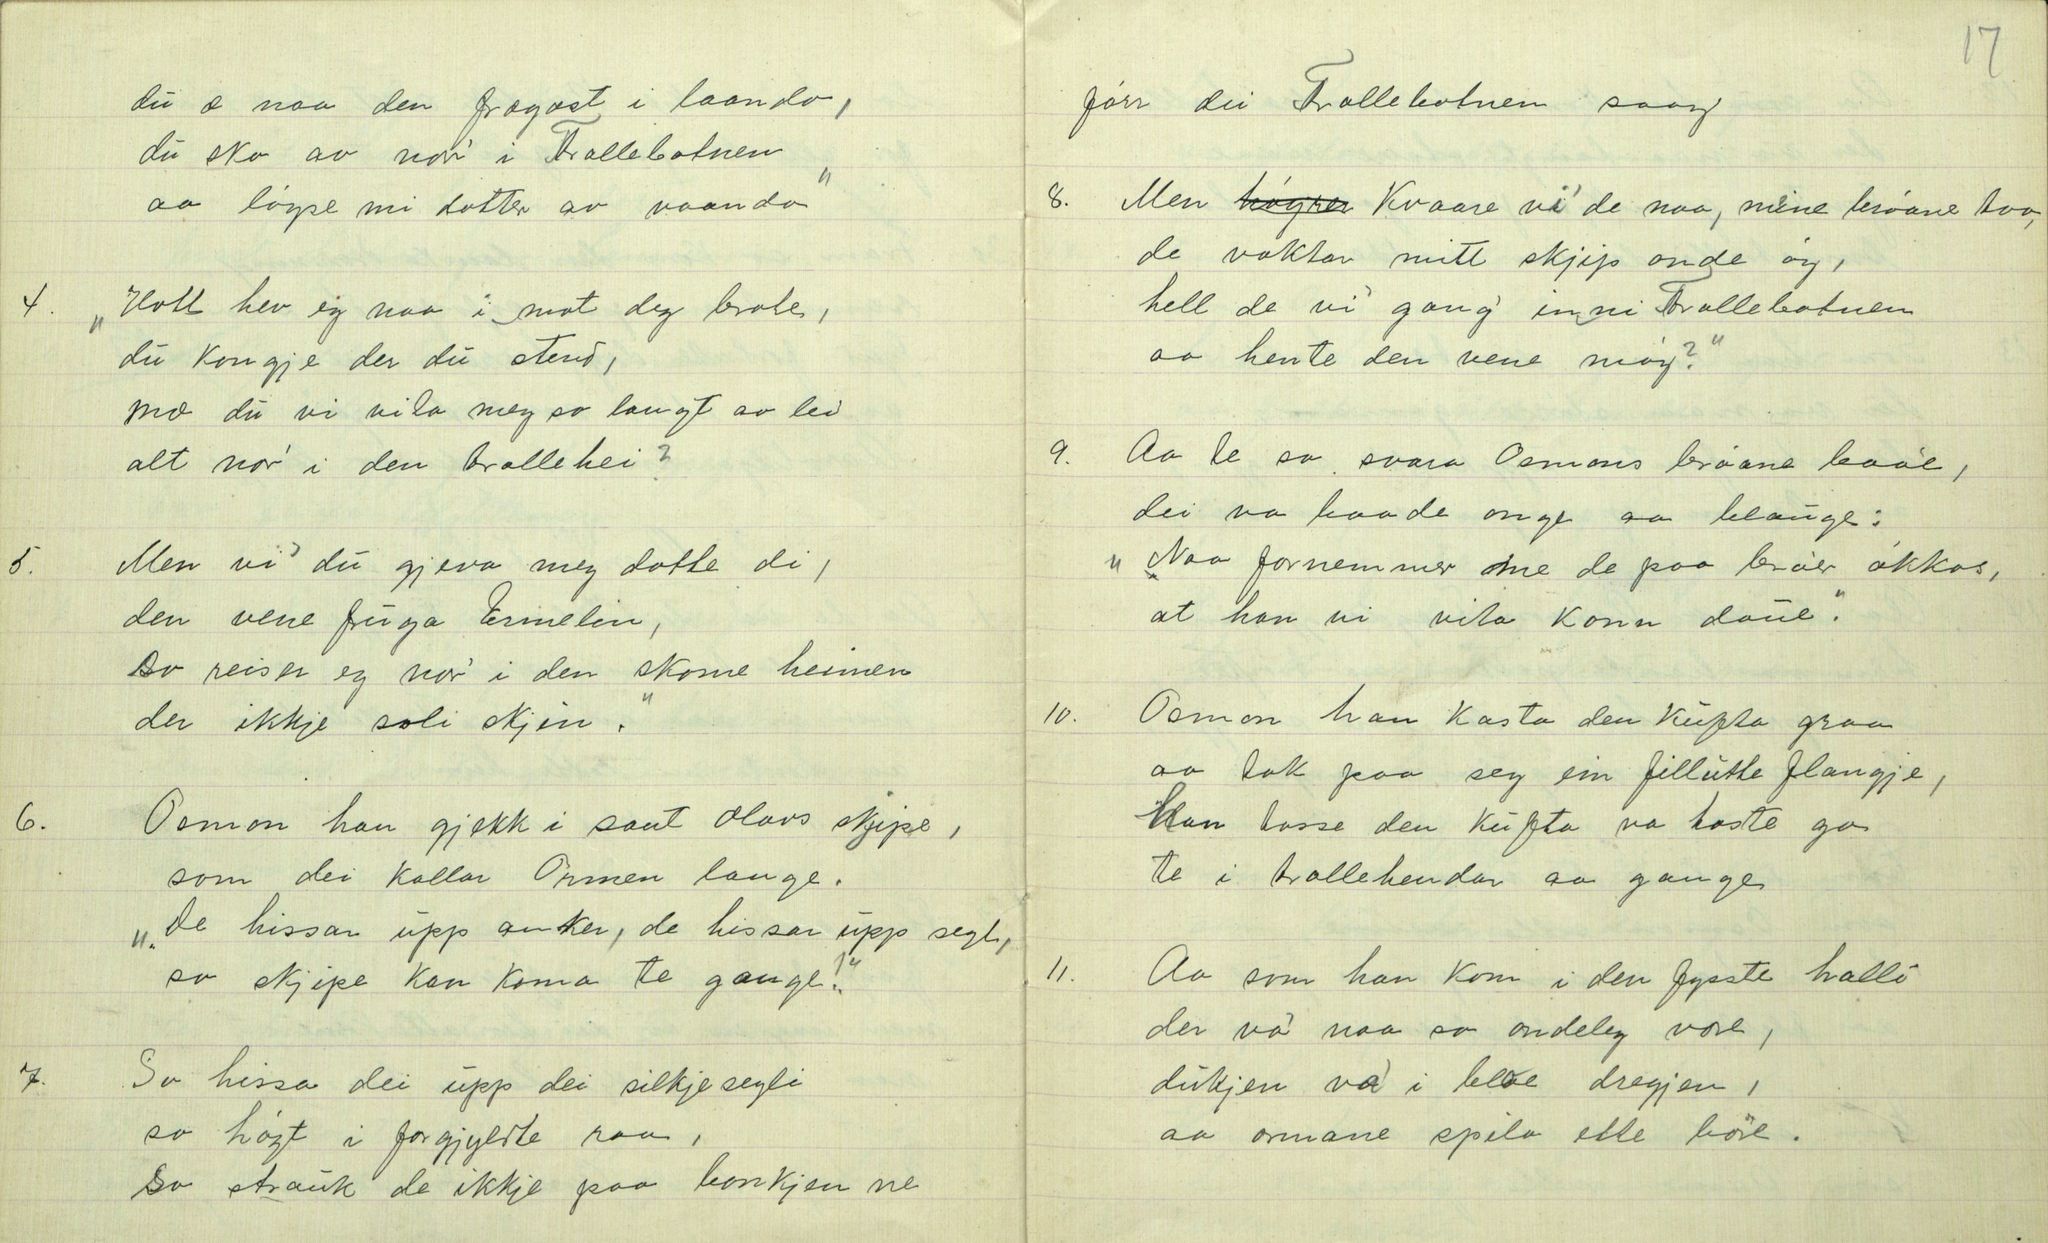 du æ naa den frægast i laando,
du ska av nor' i Trollebotnen
aa løyse mi dotter av vaando"
4. „Hott hev eg naa i mot deg brote,
du kongje der du stend,
mæ du vi vila meg so langt av lei
alt nor' i den trollehei?
5. Men vi' du gjeva meg dotte di,
den vene fruga Ermelin,
So reiser eg nor' i den skome heimen
der ikkje soli skjin."
6. Osmon han gjekk i sant Olavs skjipe,
som dei kallar Ormen lange.
„De hissar upp anker, de hissar upp segl,
so skjipe kan koma te gange!"
7. So hissa dei upp dei silkjesegli
so høgt i forgjyldte raa,
So strauk de ikkje paa bonkjen ne
17
førr dei Trollebotnen saag
8. Men høgrer Kvaare vi' de naa, mine brøane tvo,
de voktar mitt skjip onde øy,
hell de vi' gang' inni Trollebotnen
aa hente den vene møy?"
9. Aa te so svara Osmons brøane baae,
dei va baade onge aa blauge:
„Naa fornemmer me de paa broer økkos,
at han vi vila konn daue".
10. Osmon han kasta den kufta graa
aa tok paa seg ein fillutte flangje,
Han tosse den kufta va toste go
te i trollehendar aa gange
11. Aa som han kom i den fysste halli
der va' naa so ondeleg vore,
dukjen va' i bloe dregjen,
aa ormane spila ette bore.